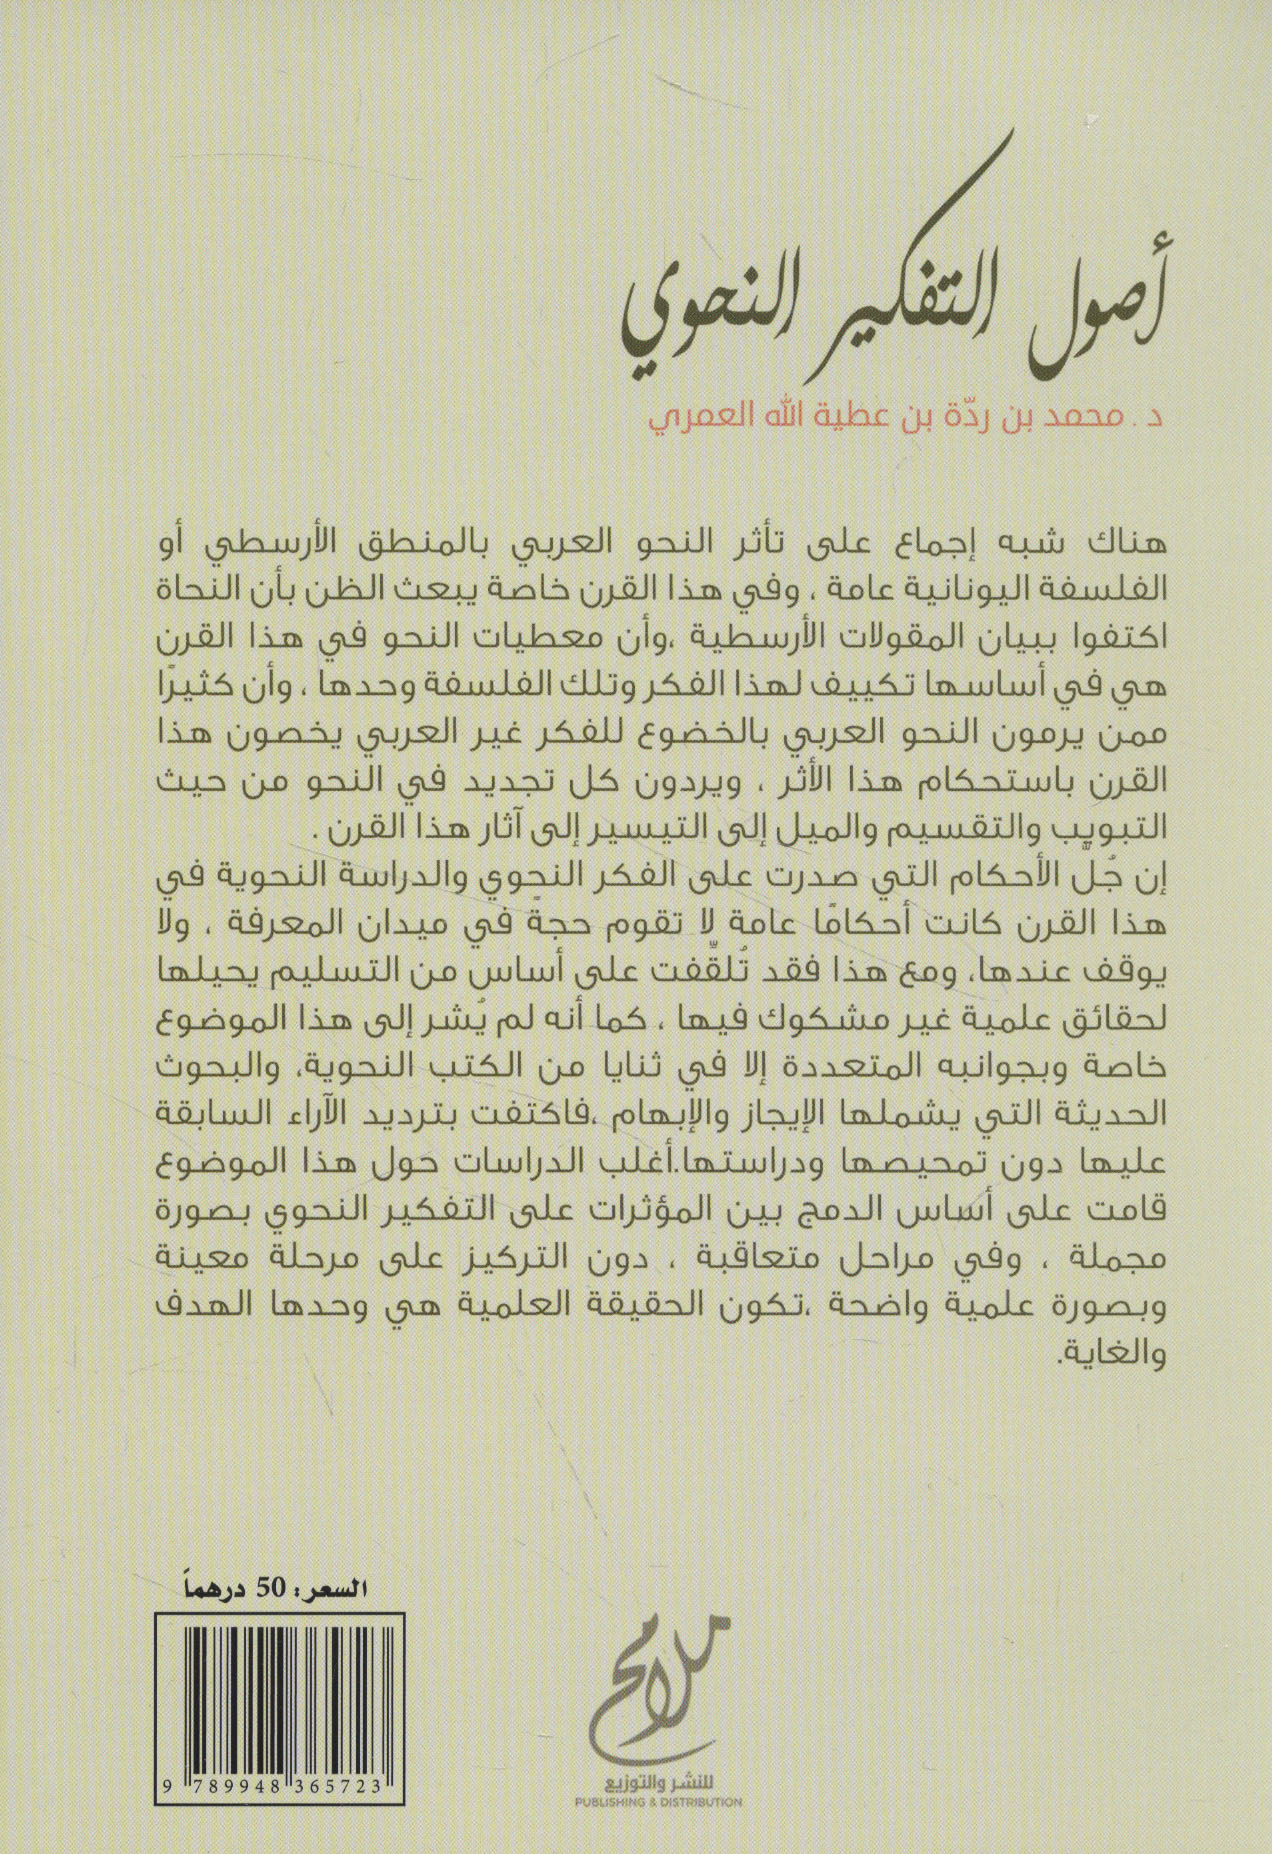 أصول التفكير النحوي
د . محمد بن ردّة بن عطية الله العمري
هناك شبه إجماع على تأثر النحو العربي بالمنطق الأرسطي أو
الفلسفة اليونانية عامة ، وفي هذا القرن خاصة يبعث الظن بأن النحاة
اكتفوا ببيان المقولات الأرسطية ،وأن معطيات النحو في هذا القرن
هي في أساسها تكييف لهذا الفكر وتلك الفلسفة وحدها ، وأن كثيرًا
ممن يرمون النحو العربي بالخضوع للفكر غير العربي يخصون هذا
القرن باستحكام هذا الأثر ، ويردون كل تجديد في النحو من حيث
التبويب والتقسيم والميل إلى التيسير إلى آثار هذا القرن .
إن جُلّ الأحكام التي صدرت على الفكر النحوي والدراسة النحوية في
هذا القرن كانت أحكامًا عامة لا تقوم حجةً في ميدان المعرفة ، ولا
يوقف عندها، ومع هذا فقد تُلقِّفت على أساس من التسليم يحيلها
لحقائق علمية غير مشكوك فيها ، كما أنه لم يُشر إلى هذا الموضوع
خاصة وبجوانبه المتعددة إلا في ثنايا من الكتب النحوية، والبحوث
الحديثة التي يشملها الإيجاز والإبهام ،فاكتفت بترديد الآراء السابقة
عليها دون تمحيصها ودراستها.أغلب الدراسات حول هذا الموضوع
قامت على أساس الدمج بين المؤثرات على التفكير النحوي بصورة
مجملة ، وفي مراحل متعاقبة ، دون التركيز على مرحلة معينة
وبصورة علمية واضحة ،تكون الحقيقة العلمية هي وحدها الهدف
والغاية.
السعر: 50 درهماً
9 789948 365723
ملامح
للنشر والتوزيع
PUBLISHING & DISTRIBUTION